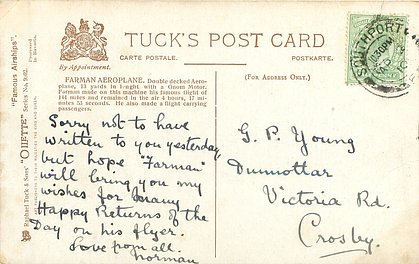 TUCK'S POST CARD
CARTE POSTALE.
POSTKARTE.
By Appointment.
(FOR ADDRESS ONLY.)
FARMAN AEROPLANE. Double decked Aero-
plane, 13 yards in lenght with a Gnom Motor.
Farman made on this machine his famous flight of
144 miles and remained in the air 4 hours, 17 min-
utes 53 seconds. He also made a flight carrying
passengers.
Sorry not to have
written to you yesterday,
but hope "Farman"
will bring you my
wishes for many
Happy Returns of the
Day on his flyer.
Love from all.
Norman
G. P. Young
Dunnottar
Victoria Rd.
Crosby.
SOUTHPORT
Raphael Tuck & Sons' "OILETTE"
"Famous Airships."